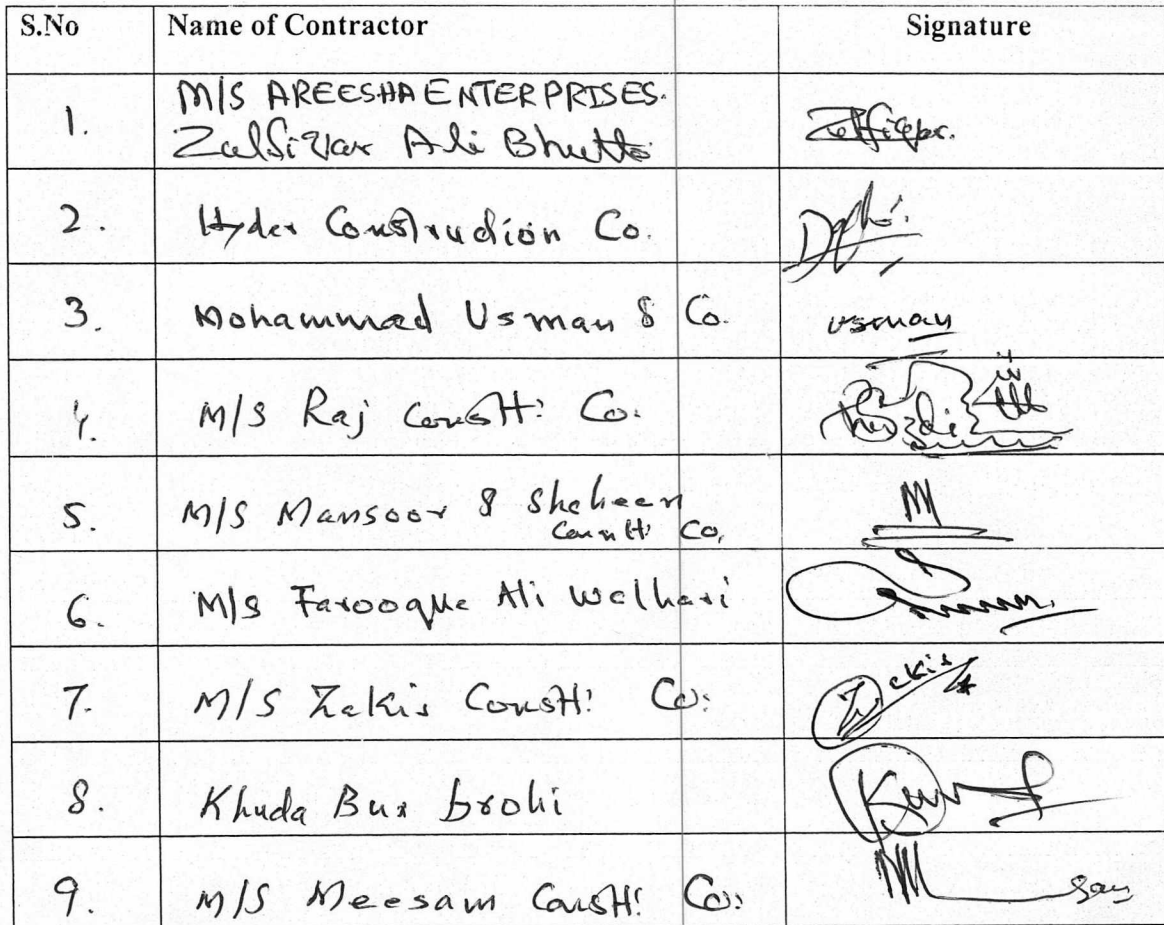 S.No Name of Contractor Signature
1. M/S AREESHA ENTERPRISES.
Zulfiqar Ali Bhutto
2. Hyder Construction Co.
3. Mohammad Usman & Co. usman
4. M/S Raj Constt: Co.
5. M/S Mansoor & Shaheen
Constt: Co.
6. M/S Farooque Ali Walhari
7. M/S Zakis Constt: Co: Zakis
8. Khuda Bux brohi
9. M/S Meesam Constt: Co: